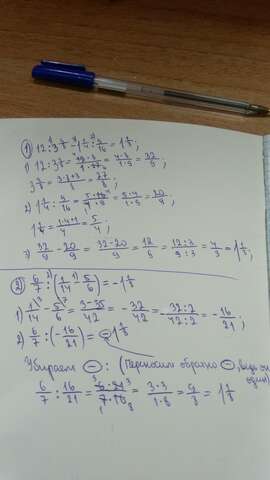 1) 12 : 3 3/8 - 1 1/4 : 9/16 = 1 1/3;
1) 12 : 3 3/8 = 12·8/1·27 = 4·8/1·9 = 32/9;
3 3/8 = 3·8+3/8 = 27/8;
2) 1 1/4 : 9/16 = 5·16/4·9 = 5·4/1·9 = 20/9;
1 1/4 = 1·4+1/4 = 5/4;
3) 32/9 - 20/9 = 32-20/9 = 12/9 = 12:3/9:3 = 4/3 = 1 1/3;
2) 6/7 : (1/14 - 5/6) = -1 1/8
1) 1/14 - 5/6 = 3-35/42 = -32/42 = -32:2/42:2 = -16/21;
2) 6/7 : (-16/21) = -1 1/8
Убираем - : (Переносим обратно -, ведь он один)
6/7 : 16/21 = 6·21/7·16 = 3·3/1·8 = 9/8 = 1 1/8